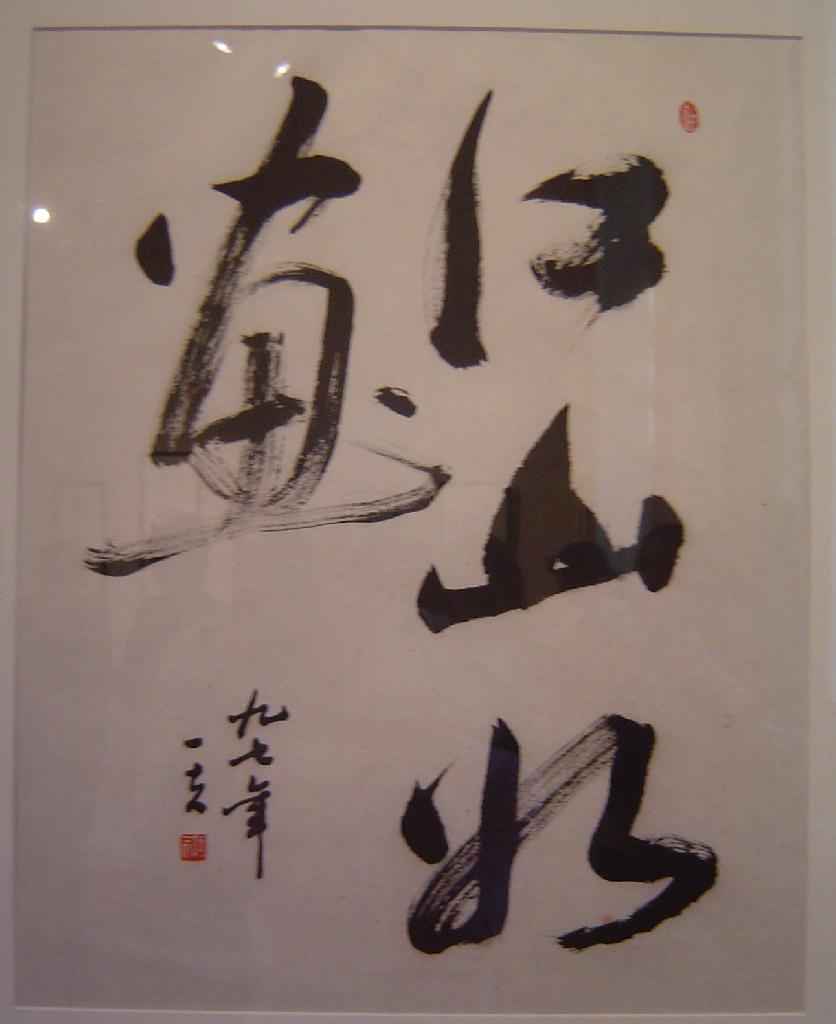 江山如
画
九七年
一